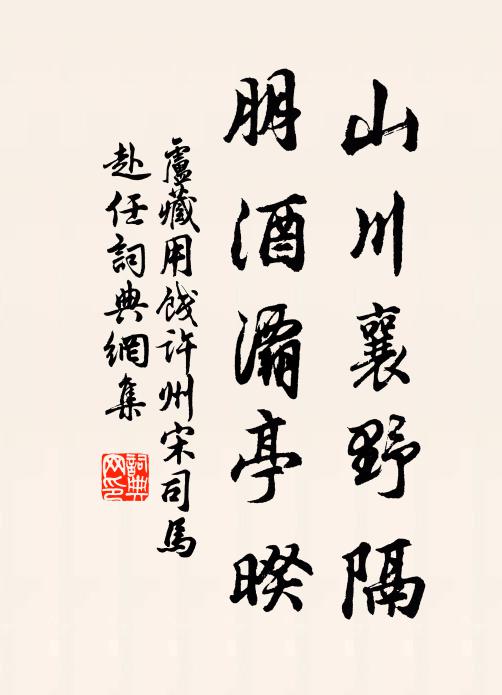 山川襄野隔
朋酒灞亭暌
盧藏用餞許州宋司馬
赴任詞典網集
詞典网印